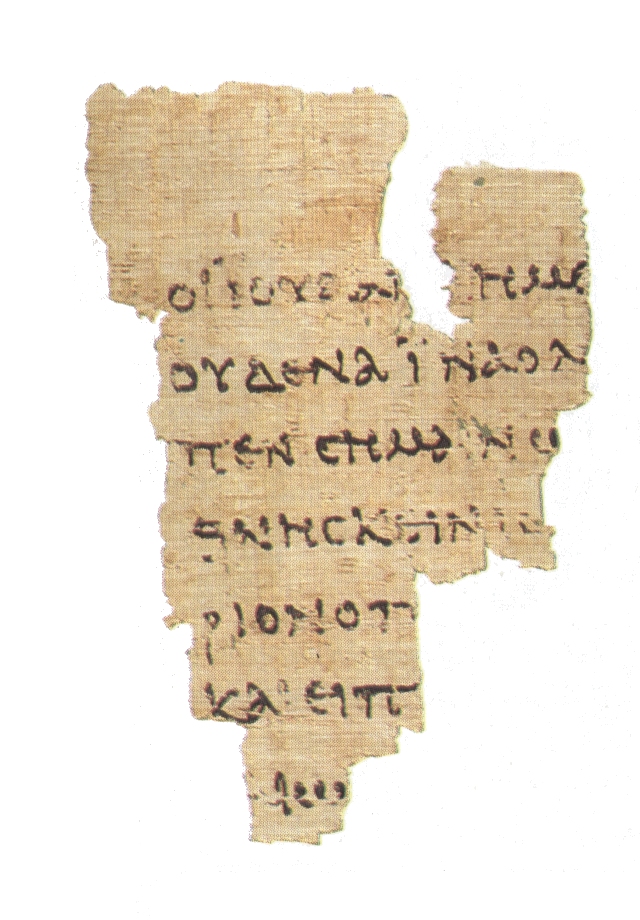 ΟΙΙΟΥΔΑΙ ΗΜΕ
ΟΥΔΕΝΑΪΝΑΟΛ
ΠΕΝϹΗΜΑΙΝΩ
ΘΝΗϹΚΕΙΝΙϹ
ΡΙΟΝΟΠ
ΚΑΙΕΙΠ
ΑΙΩ